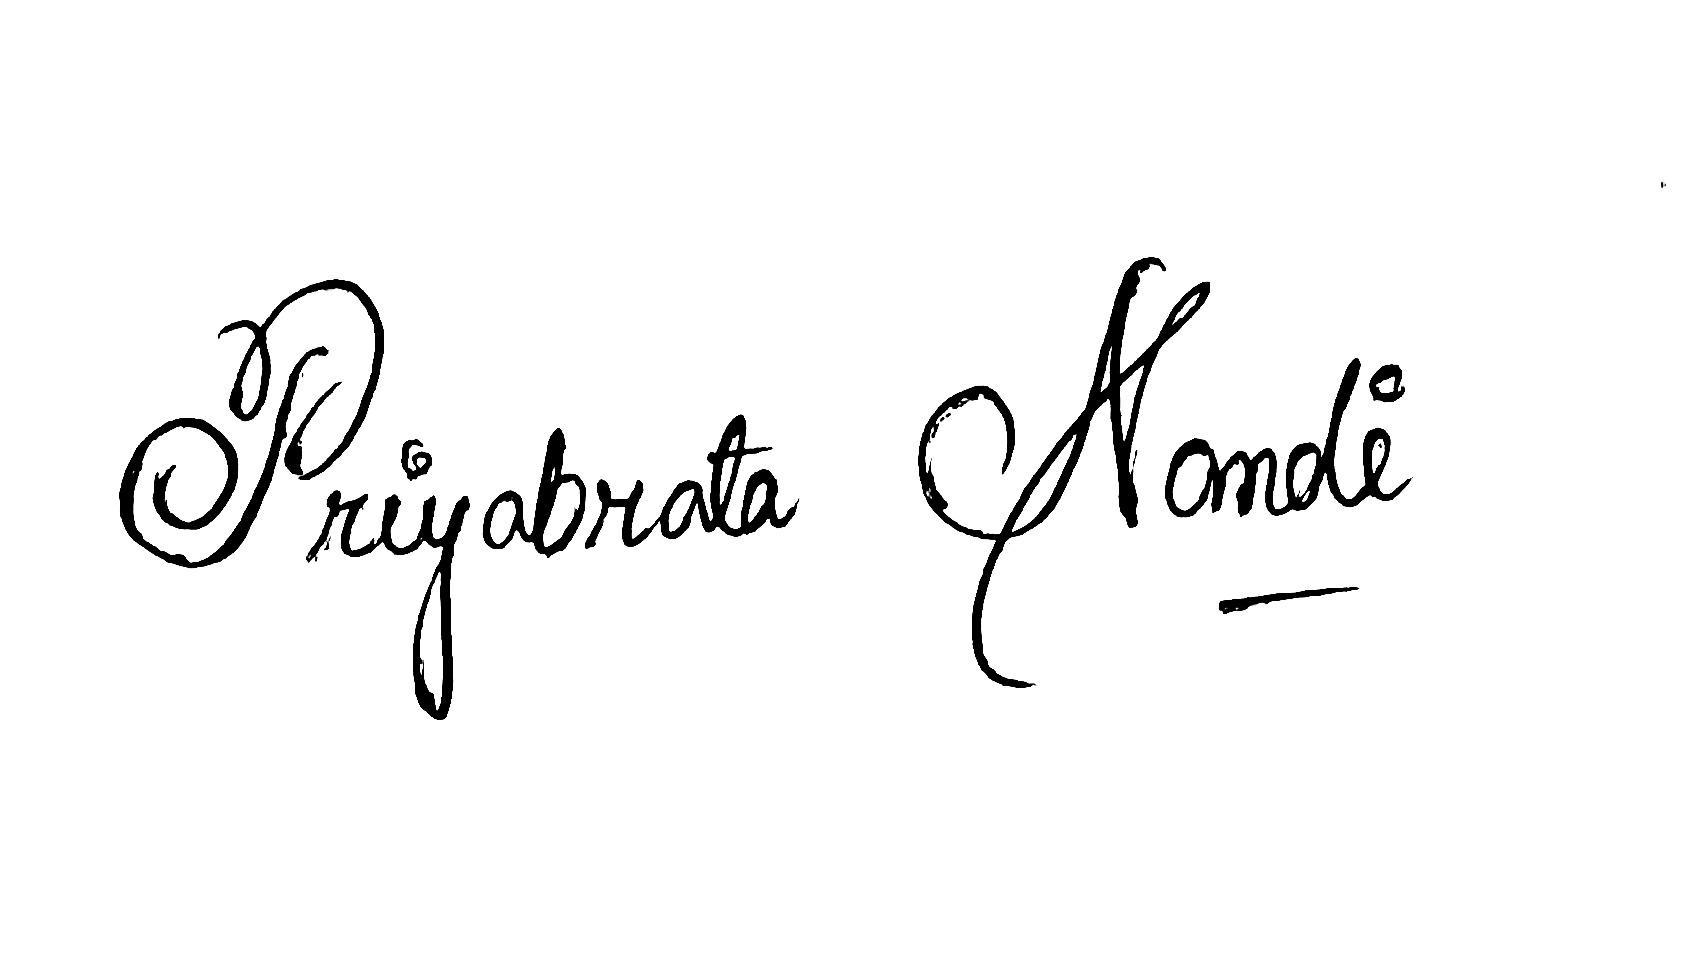 Priyabrata Nandi